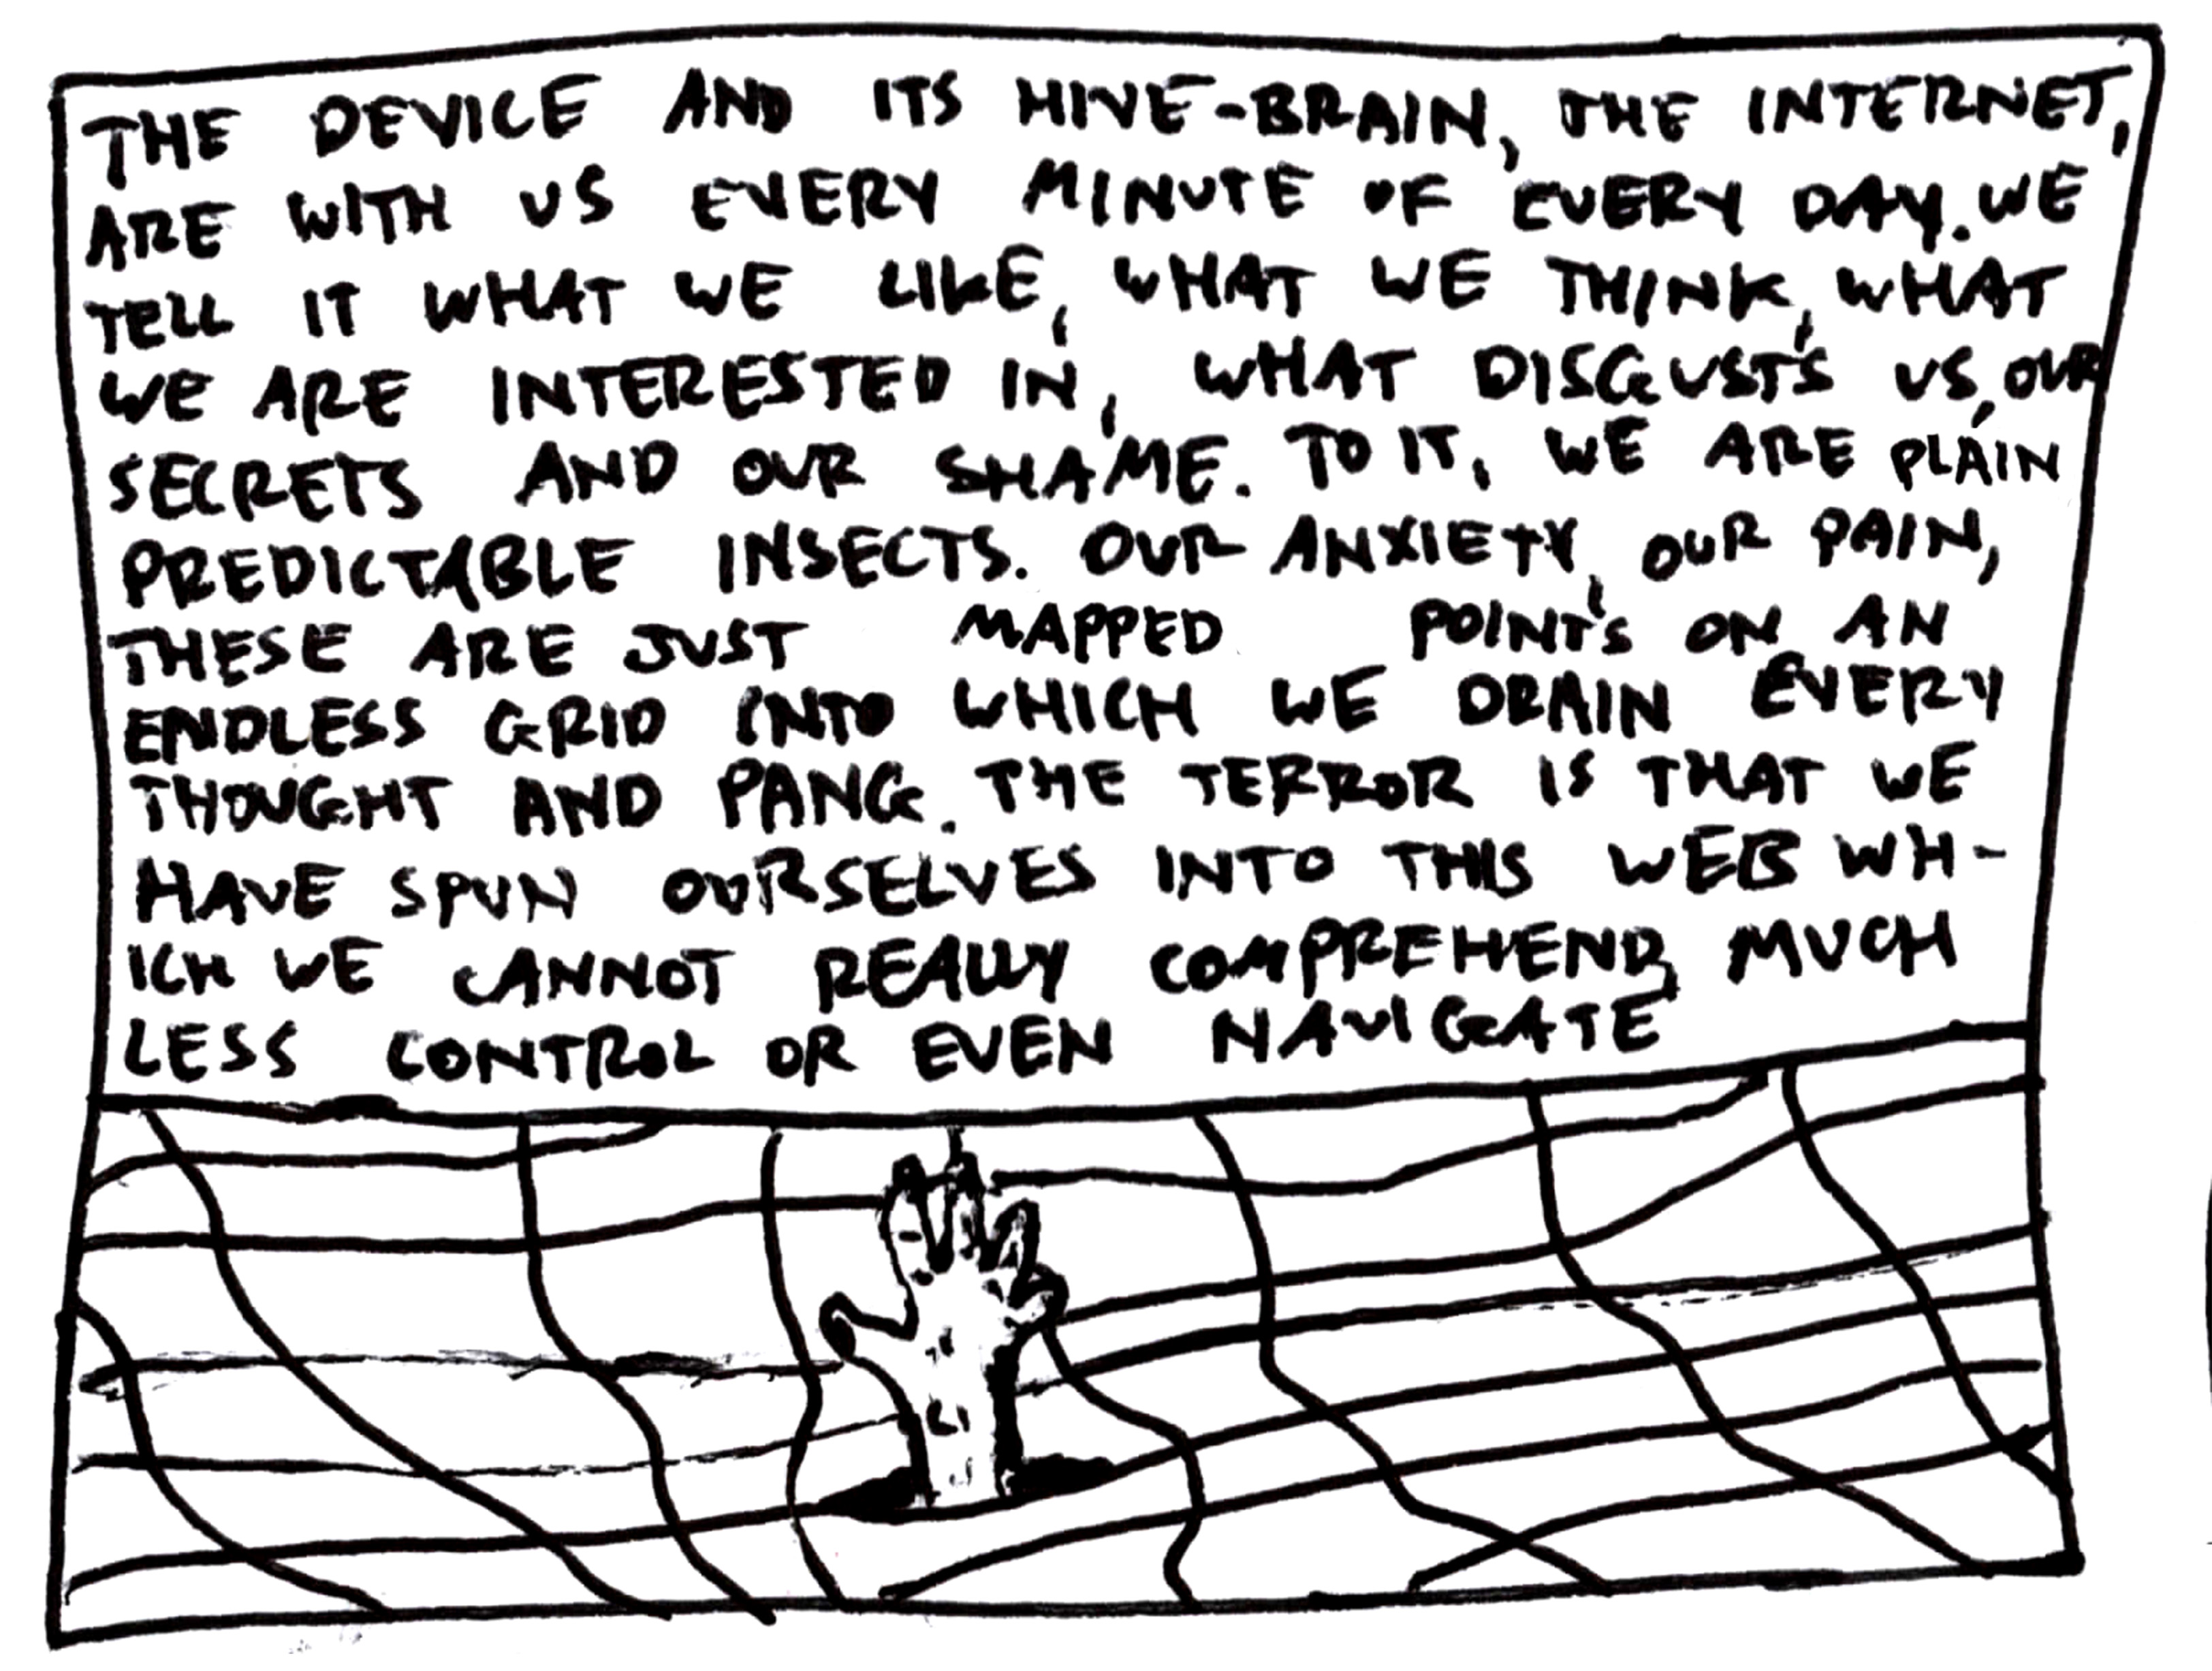 THE DEVICE AND ITS HIVE-BRAIN, THE INTERNET,
ARE WITH US EVERY MINUTE OF EVERY DAY. WE
TELL IT WHAT WE LIKE, WHAT WE THINK, WHAT
WE ARE INTERESTED IN, WHAT DISGUSTS US, OUR
SECRETS AND OUR SHAME. TO IT, WE ARE PLAIN
PREDICTABLE INSECTS. OUR ANXIETY, OUR PAIN,
THESE ARE JUST MAPPED POINTS ON AN
ENDLESS GRID INTO WHICH WE DRAIN EVERY
THOUGHT AND PANG. THE TERROR IS THAT WE
HAVE SPUN OURSELVES INTO THIS WEB WH-
ICH WE CANNOT REALLY COMPREHEND, MUCH
LESS CONTROL OR EVEN NAVIGATE